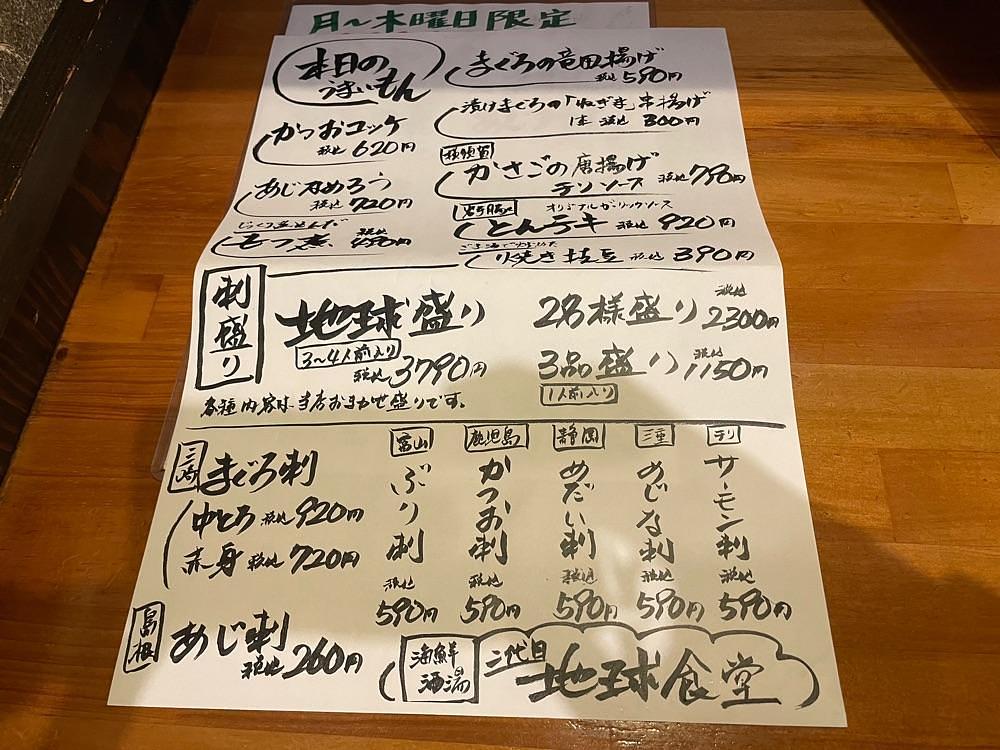 月〜木曜日限定
本日の
うまいもん
まぐろの竜田揚げ
税込590円
漬けまぐろの「ねぎま」串揚げ
1本 税込 300円
かつおコッケ
税込 620円
横須賀
かさごの唐揚げ
チリソース 税込 790円
あじなめろう
税込 720円
オリジナルガーリックソース
とんテキ 税込 920円
もつ煮 税込
り焼き枝豆 税込 390円
刺盛り
地球盛り
3〜4人前入り
税込 3790円
2名様盛り 税込 2300円
3品盛り 税込 1150円
1人前入り
各種内容は当店おまかせ盛りです。
三崎
まぐろ刺
中とろ 税込 920円
赤身 税込 720円
富山
ぶり刺
税込
590円
鹿児島
かつお刺
税込
590円
静岡
めだい刺
税込
590円
三重
めじな刺
税込
590円
チリ
サーモン刺
税込
590円
島根
あじ刺
税込 260円
海鮮
酒湯
三代目
地球食堂